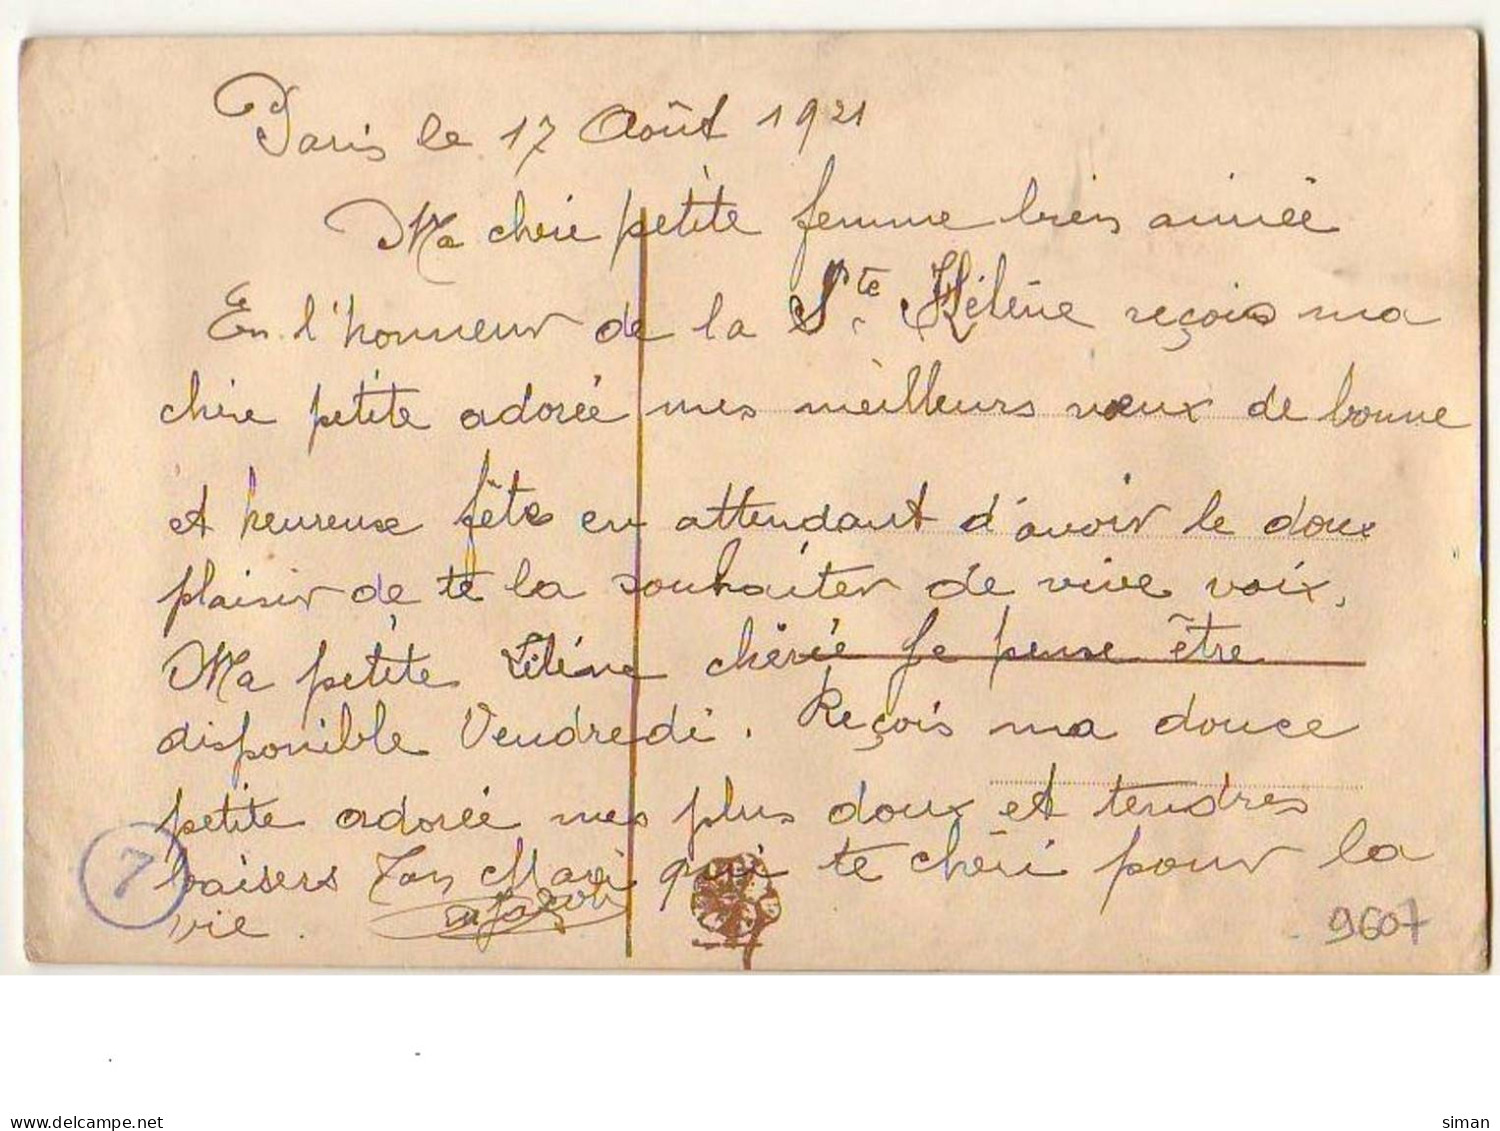 Paris le 17 Août 1921
Ma chérie petite femme bien aimée
En l'honneur de la Ste. Hélène reçois ma
chère petite adorée mes meilleurs vœux de bonne
et heureuse fête en attendant d'avoir le doux
plaisir de te la souhaiter de vive voix.
Ma petite Hélène chérie Je pense être
disponible Vendredi. Reçois ma douce
petite adorée mes plus doux et tendres
baisers Ton Mari qui te chéri pour la
vie.
7
9607
delcampe.net
siman